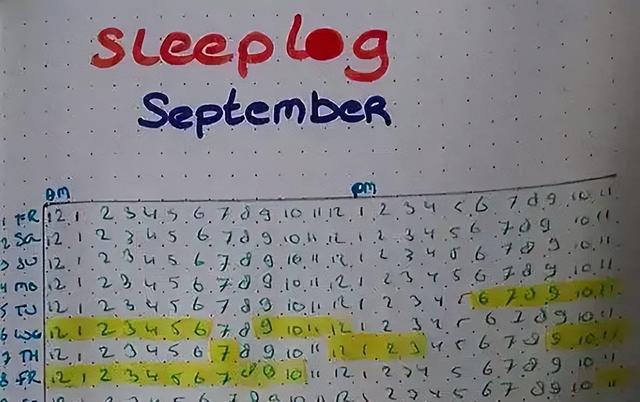 sleeplog
September
am pm
1 FR 12 1 2 3 4 5 6 7 8 9 10 11 12 1 2 3 4 5 6 7 8 9 10 11
2 SA 12 1 2 3 4 5 6 7 8 9 10 11 12 1 2 3 4 5 6 7 8 9 10 11
3 SU 12 1 2 3 4 5 6 7 8 9 10 11 12 1 2 3 4 5 6 7 8 9 10 11
4 MO 12 1 2 3 4 5 6 7 8 9 10 11 12 1 2 3 4 5 6 7 8 9 10 11
5 TU 12 1 2 3 4 5 6 7 8 9 10 11 12 1 2 3 4 5 6 7 8 9 10 11
6 WO 12 1 2 3 4 5 6 7 8 9 10 11 12 1 2 3 4 5 6 7 8 9 10 11
7 TH 12 1 2 3 4 5 6 7 8 9 10 11 12 1 2 3 4 5 6 7 8 9 10 11
8 FR 12 1 2 3 4 5 6 7 8 9 10 11 12 1 2 3 4 5 6 7 8 9 10 11